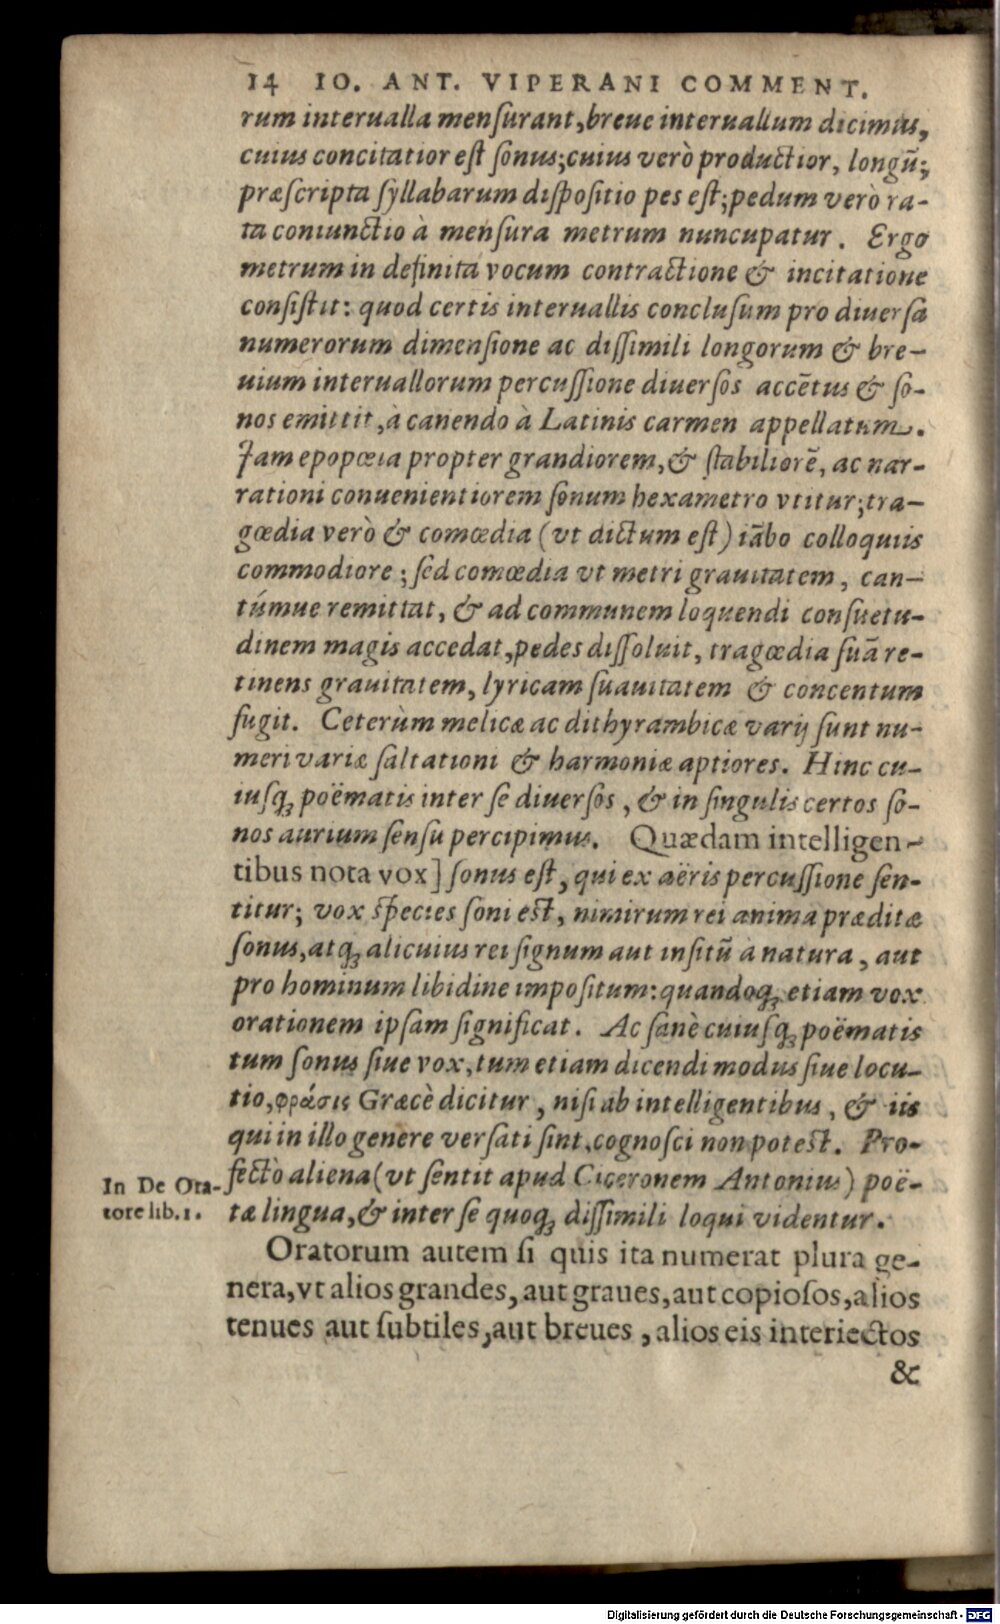 14 IO. ANT. VIPERANI COMMENT.
rum interualla menſurant, breue interuallum dicimus,
cuius concitatior eſt ſonus; cuius verò productior, longũ;
præſcripta ſyllabarum diſpoſitio pes eſt; pedum verò ra-
ta coniunctio à menſura metrum nuncupatur. Ergo
metrum in definita vocum contractione & incitatione
conſiſtit: quod certis interuallis concluſum pro diuerſa
numerorum dimenſione ac diſſimili longorum & bre-
uium interuallorum percuſſione diuerſos accẽtus & ſo-
nos emittit, à canendo à Latinis carmen appellatum.
Jam epopœia propter grandiorem, & ſtabiliorẽ, ac nar-
rationi conuenientiorem ſonum hexametro vtitur; tra-
gœdia verò & comœdia (vt dictum eſt) iãbo colloquiis
commodiore; ſed comœdia vt metri grauitatem, can-
túmue remittat, & ad communem loquendi conſuetu-
dinem magis accedat, pedes diſſoluit, tragœdia ſuã re-
tinens grauitatem, lyricam ſuauitatem & concentum
fugit. Ceterùm melicæ ac dithyrambicæ varij ſunt nu-
meri variæ ſaltationi & harmoniæ aptiores. Hinc cu-
iuſq; poëmatis inter ſe diuerſos, & in ſingulis certos ſo-
nos aurium ſenſu percipimus. Quædam intelligen-
tibus nota vox] ſonus eſt, qui ex aëris percuſſione ſen-
titur; vox ſpecies ſoni eſt, nimirum rei anima præditæ
ſonus, atq; alicuius rei ſignum aut inſitũ a natura, aut
pro hominum libidine impoſitum: quandoq; etiam vox
orationem ipſam ſignificat. Ac ſanè cuiuſq; poëmatis
tum ſonus ſiue vox, tum etiam dicendi modus ſiue locu-
tio, φράσις Græcè dicitur, niſi ab intelligentibus, & iis
qui in illo genere verſati ſint, cognoſci non poteſt. Pro-
fectò aliena (vt ſentit apud Ciceronem Antonius) poë-
tæ lingua, & inter ſe quoq; diſſimili loqui videntur.
In De Ora-
tore lib. 1.
Oratorum autem ſi quis ita numerat plura ge-
nera, vt alios grandes, aut graues, aut copioſos, alios
tenues aut ſubtiles, aut breues, alios eis interiectos
&
Digitalisierung gefördert durch die Deutsche Forschungsgemeinschaft - DFG